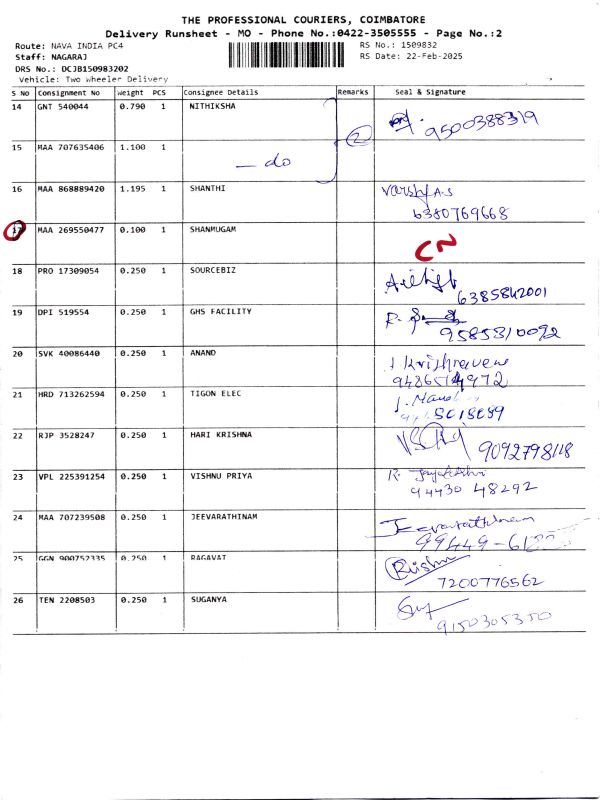 THE PROFESSIONAL COURIERS, COIMBATORE
Delivery Runsheet - MO - Phone No.:0422-3505555 - Page No.:2
Route: NAVA INDIA PC4 RS No.: 1509832
Staff: NAGARAJ RS Date: 22-Feb-2025
DRS No.: DCJB150983202
Vehicle: Two Wheeler Delivery
S No Consignment No Weight PCS Consignee Details Remarks Seal & Signature
14 GNT 540044 0.790 1 NITHIKSHA 2 9500388319
15 MAA 707635406 1.100 1 — do
16 MAA 868889420 1.195 1 SHANTHI Varsha.s
6380769668
17 MAA 269550477 0.100 1 SHANMUGAM CN
18 PRO 17309054 0.250 1 SOURCEBIZ
6385842001
19 DPI 519554 0.250 1 GHS FACILITY R.
9585310092
20 SVK 40086440 0.250 1 ANAND J Krishnaveni
21 HRD 713262594 0.250 1 TIGON ELEC J.
22 RJP 3528247 0.250 1 HARI KRISHNA 9092798118
23 VPL 225391254 0.250 1 VISHNU PRIYA R.
94430 48292
24 MAA 707239508 0.250 1 JEEVARATHINAM Jeevarathinam
99449-61
25 GGN 900752335 0.250 1 RAGAVAT
7200776562
26 TEN 2208503 0.250 1 SUGANYA
9150305350